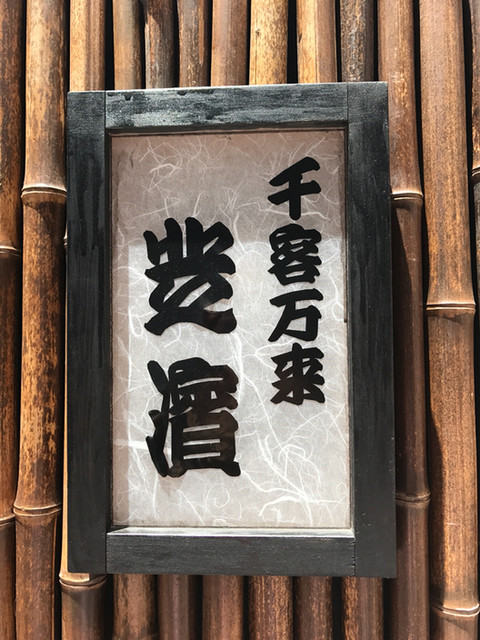 千客万来
豊濱